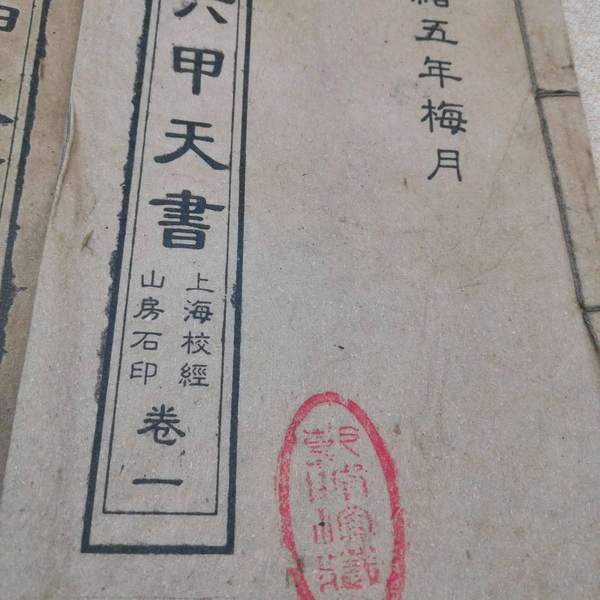 緒五年梅月
六甲天書
上海校經
山房石印
卷一